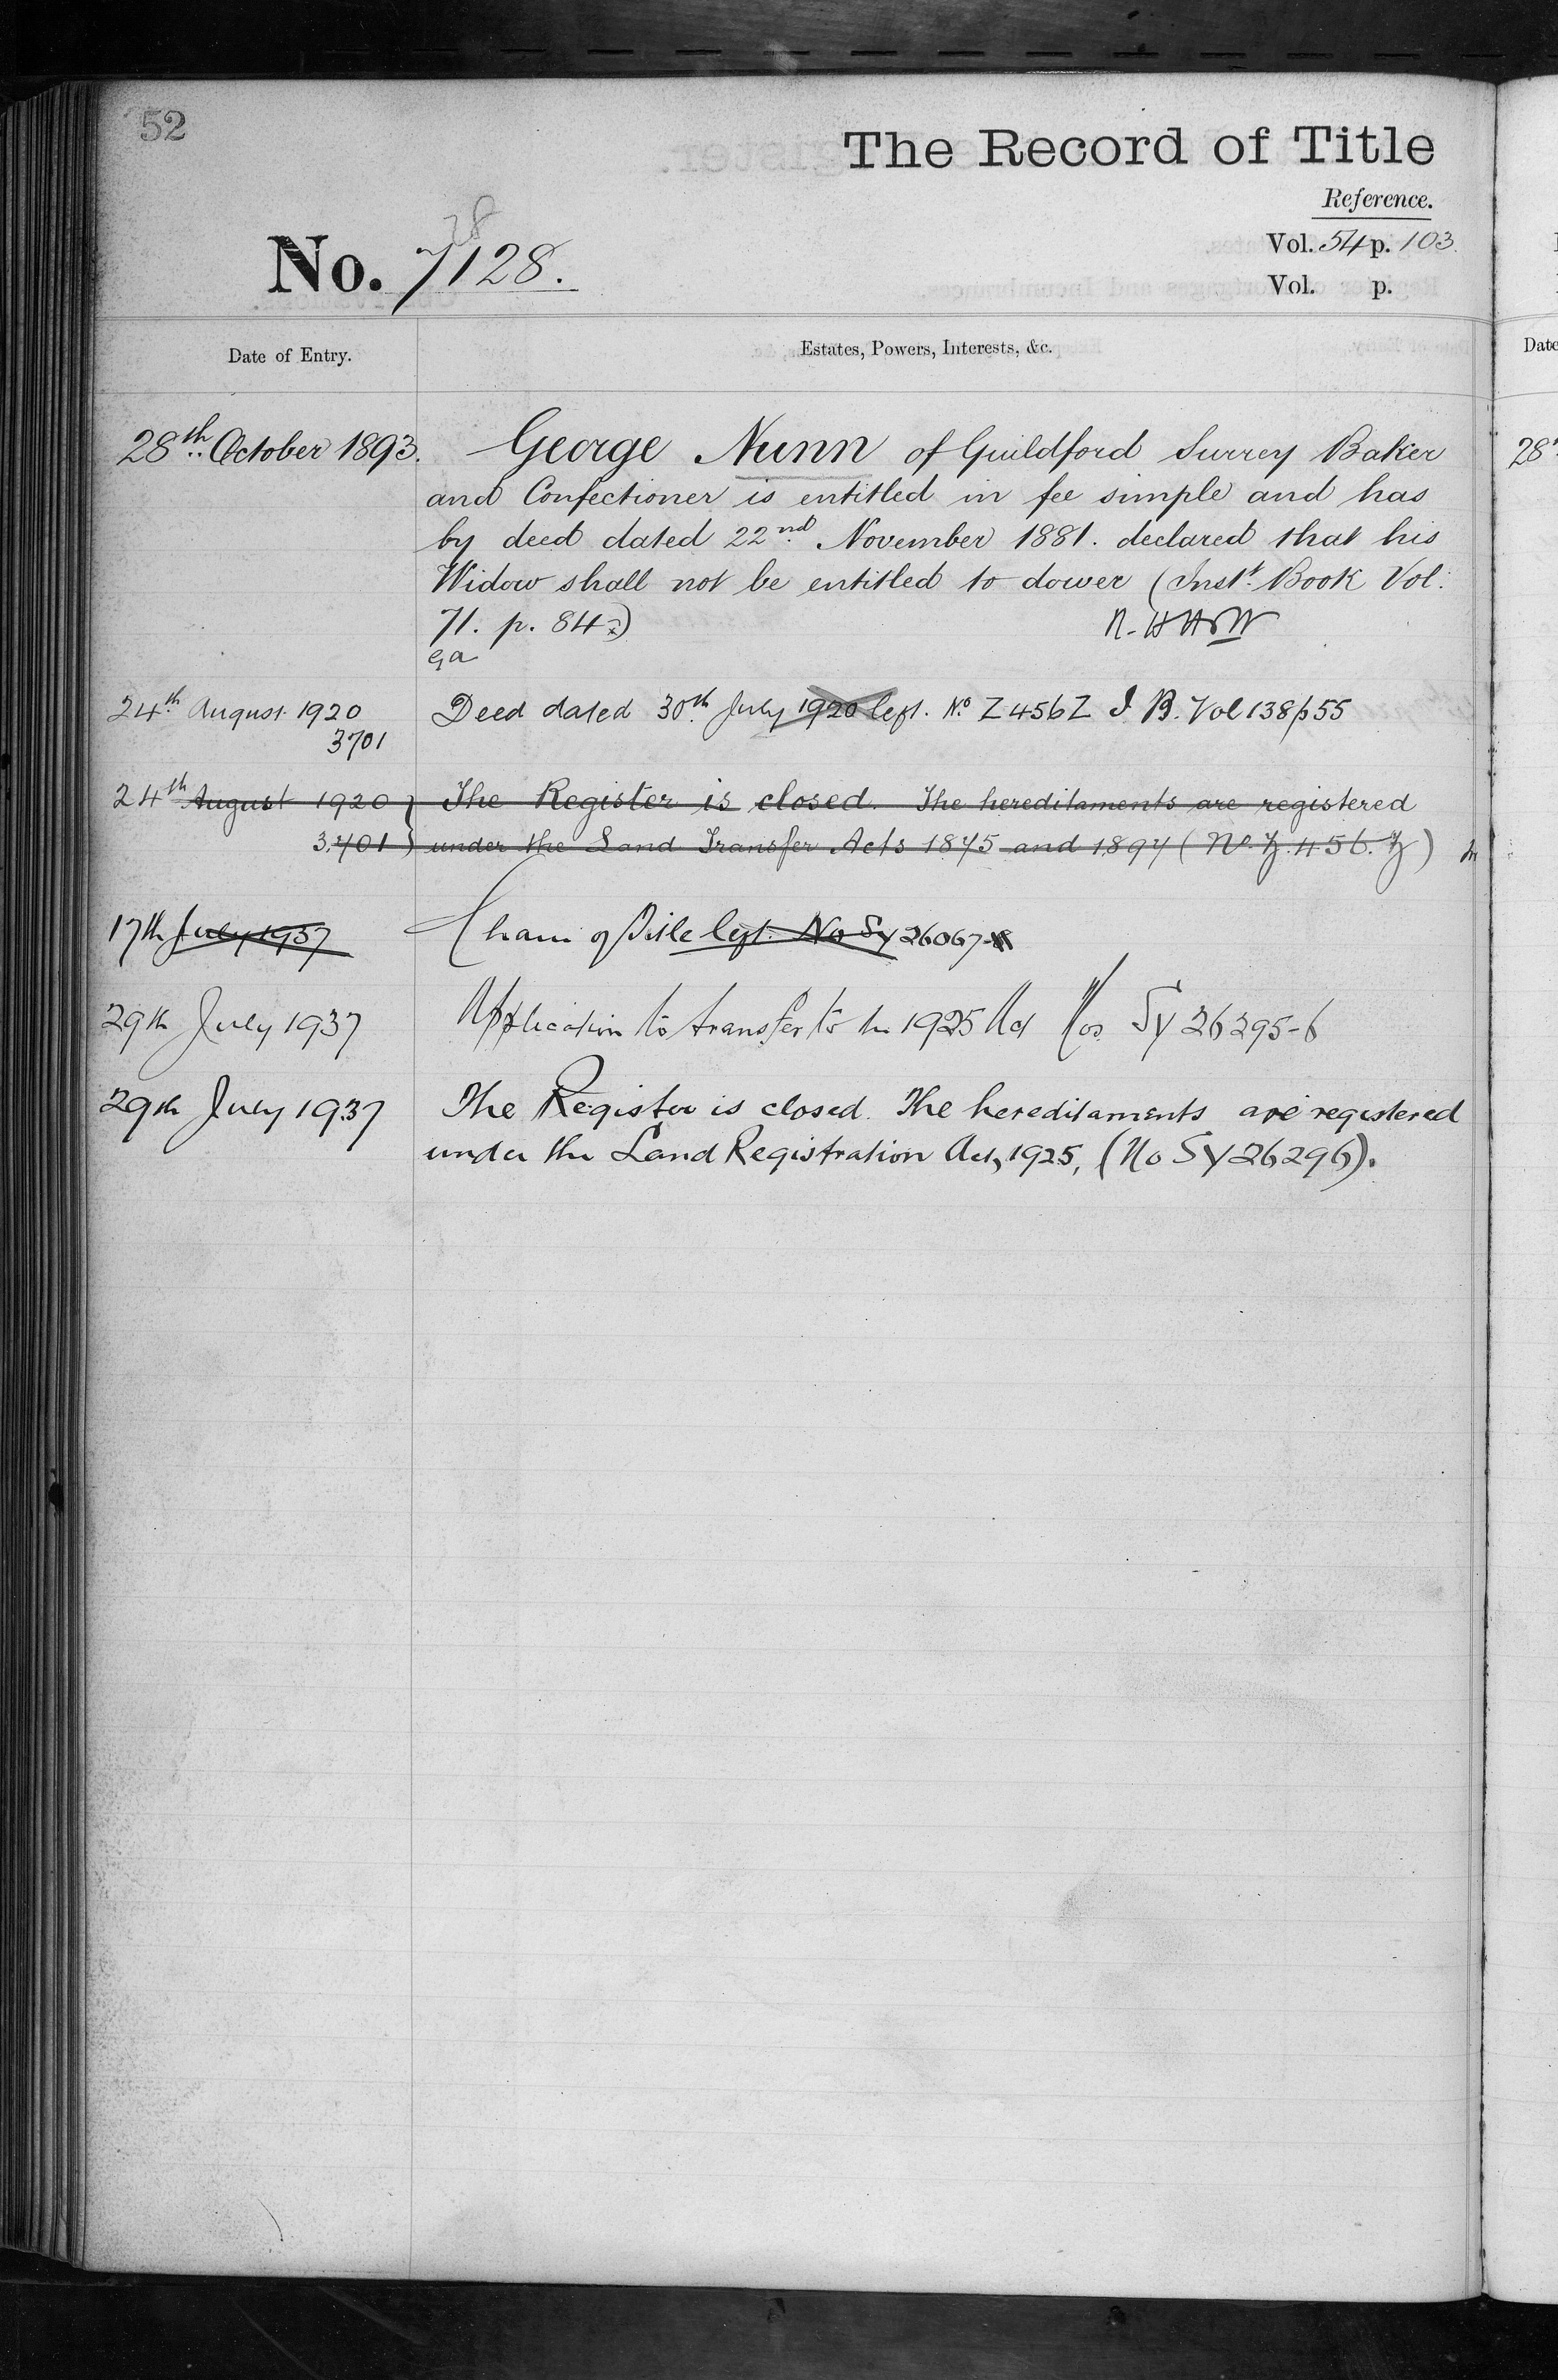 52
The Record of Title
Reference.
28
No. 7128.
Vol. 54 p. 103.
Vol. p.
Date of Entry.
Estates, Powers, Interests, &c.
28th October 1893.
George Nunn of Guildford Surrey Baker
and Confectioner is entitled in fee simple and has
by deed dated 22nd November 1881. declared that his
Widow shall not be entitled to dower (Inst. Book Vol:
71. p. 84)
24th August 1920
Deed dated 30th July 1920 left. No Z456Z I. B. Vol 138 p 55
3701
24th August 1920
The Register is closed. The hereditaments are registered
3,701
under the Land Transfer Acts 1875 and 1897 (No. Z.456.Z)
17th July 1937
of Title left. No Sy 26067
29th July 1937
Application to transfer to the 1925 Act Nos Sy 26295-6
29th July 1937
The Register is closed. The hereditaments are registered
under the Land Registration Act, 1925, (No SY26296).
Date
28